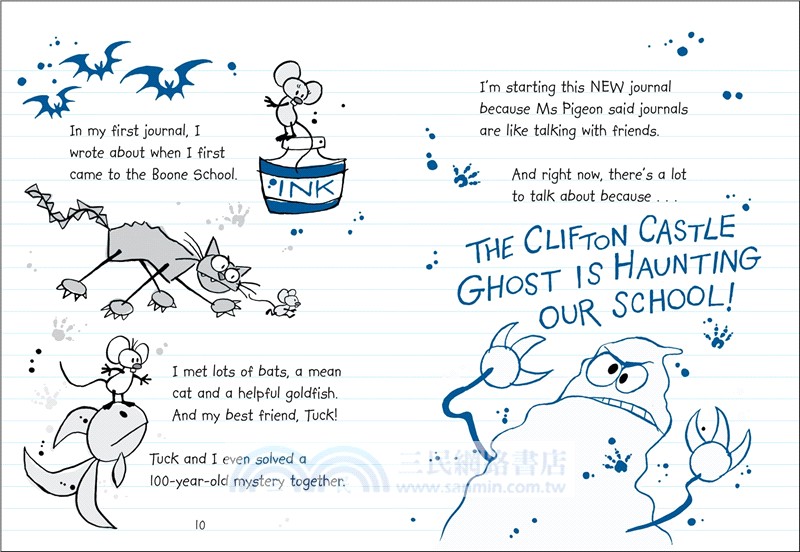 In my first journal, I
wrote about when I first
came to the Boone School.
INK
I met lots of bats, a mean
cat and a helpful goldfish.
And my best friend, Tuck!
Tuck and I even solved a
100-year-old mystery together.
10
I'm starting this NEW journal
because Ms Pigeon said journals
are like talking with friends.
And right now, there's a lot
to talk about because . . .
THE CLIFTON CASTLE
GHOST IS HAUNTING
OUR SCHOOL!
三民網路書店
www.sanmin.com.tw